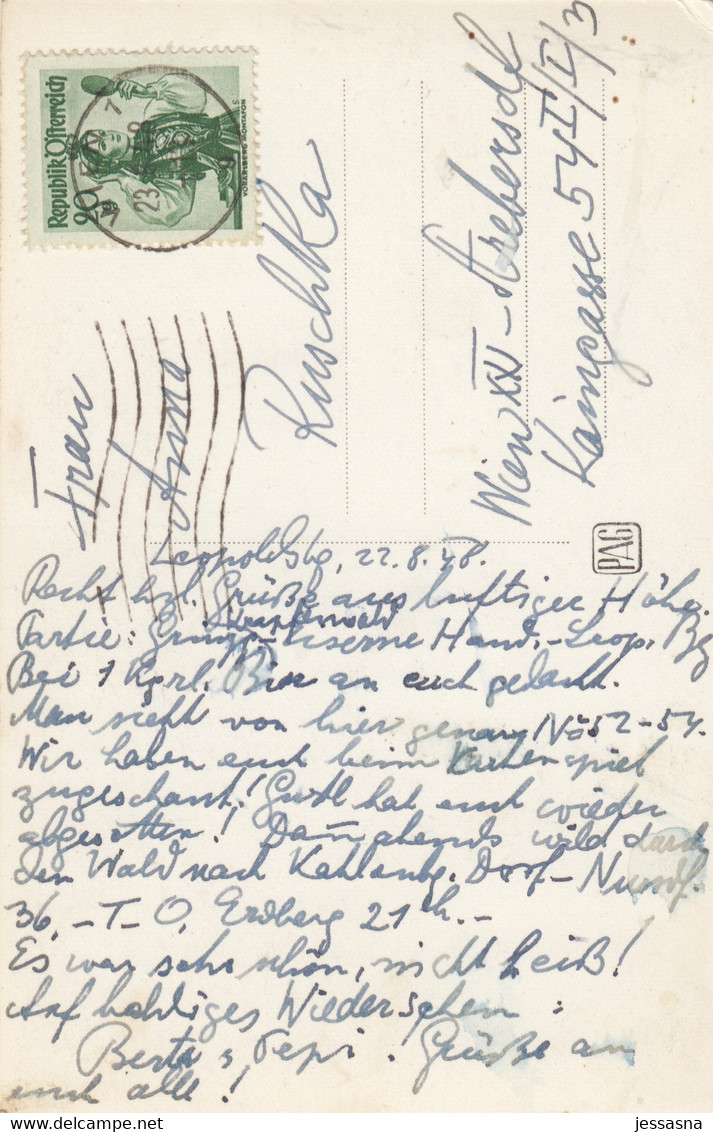 Republik Österreich
20
VORARLBERG, MONTAFON
WIEN
23
Frau
Anna
Ruschka
Wien XXI - Strebersdf
54 I/I/3
PAG
Leopoldsbg, 22.8.48.
Recht hzl. Grüße aus luftiger Höhe.
Partie: Krapfenwald
Eiserne Hand.-Leop. Bg
Bei 1 Bier an euch gedacht.
Man sieht von hier genau No 52-54.
Wir haben euch beim Kartenspiel
zugeschaut! Gustl hat euch wieder
abgesotten! Dann abends wild durch
den Wald nach Kahlenbg. Dorf-Nussdf.
36, -T-O, Erdberg 21 h.-
Es war sehr schön, nicht heiß!
Auf baldiges Wiedersehen:
Berta u. Pepi. Grüße an
euch alle!
jessasna